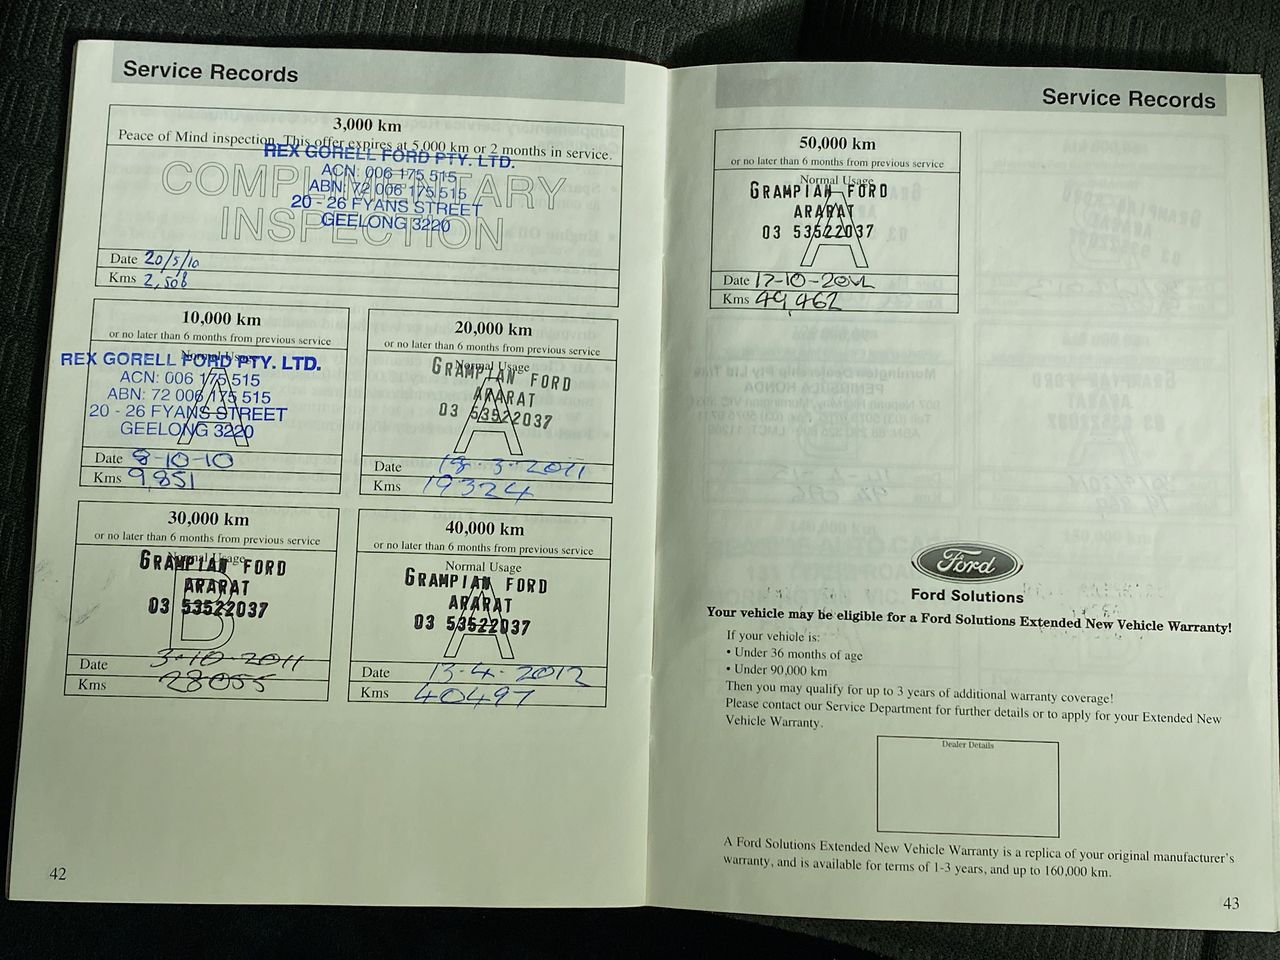 Service Records
3,000 km
Peace of Mind inspection. This offer expires at 5,000 km or 2 months in service.
COMPLIMENTARY
INSPECTION
REX GORELL FORD PTY. LTD.
ACN: 006 175 515
ABN: 72 006 175 515
20 - 26 FYANS STREET
GEELONG 3220
Date 20/5/10
Kms 2,508
10,000 km
or no later than 6 months from previous service
Normal Usage
A
REX GORELL FORD PTY. LTD.
ACN: 006 175 515
ABN: 72 006 175 515
20 - 26 FYANS STREET
GEELONG 3220
Date 8-10-10
Kms 9,851
20,000 km
or no later than 6 months from previous service
Normal Usage
A
GRAMPIAN FORD
ARARAT
03 53522037
Date 18-3-2011
Kms 19324
30,000 km
or no later than 6 months from previous service
Normal Usage
B
GRAMPIAN FORD
ARARAT
03 53522037
Date 3-10-2011
Kms 28055
40,000 km
or no later than 6 months from previous service
Normal Usage
A
GRAMPIAN FORD
ARARAT
03 53522037
Date 13-4-2012
Kms 40497
42
Service Records
50,000 km
or no later than 6 months from previous service
Normal Usage
A
GRAMPIAN FORD
ARARAT
03 53522037
Date 17-10-2012
Kms 49,462
Ford
Ford Solutions
Your vehicle may be eligible for a Ford Solutions Extended New Vehicle Warranty!
If your vehicle is:
• Under 36 months of age
• Under 90,000 km
Then you may qualify for up to 3 years of additional warranty coverage!
Please contact our Service Department for further details or to apply for your Extended New
Vehicle Warranty.
Dealer Details
A Ford Solutions Extended New Vehicle Warranty is a replica of your original manufacturer's
warranty, and is available for terms of 1-3 years, and up to 160,000 km.
43